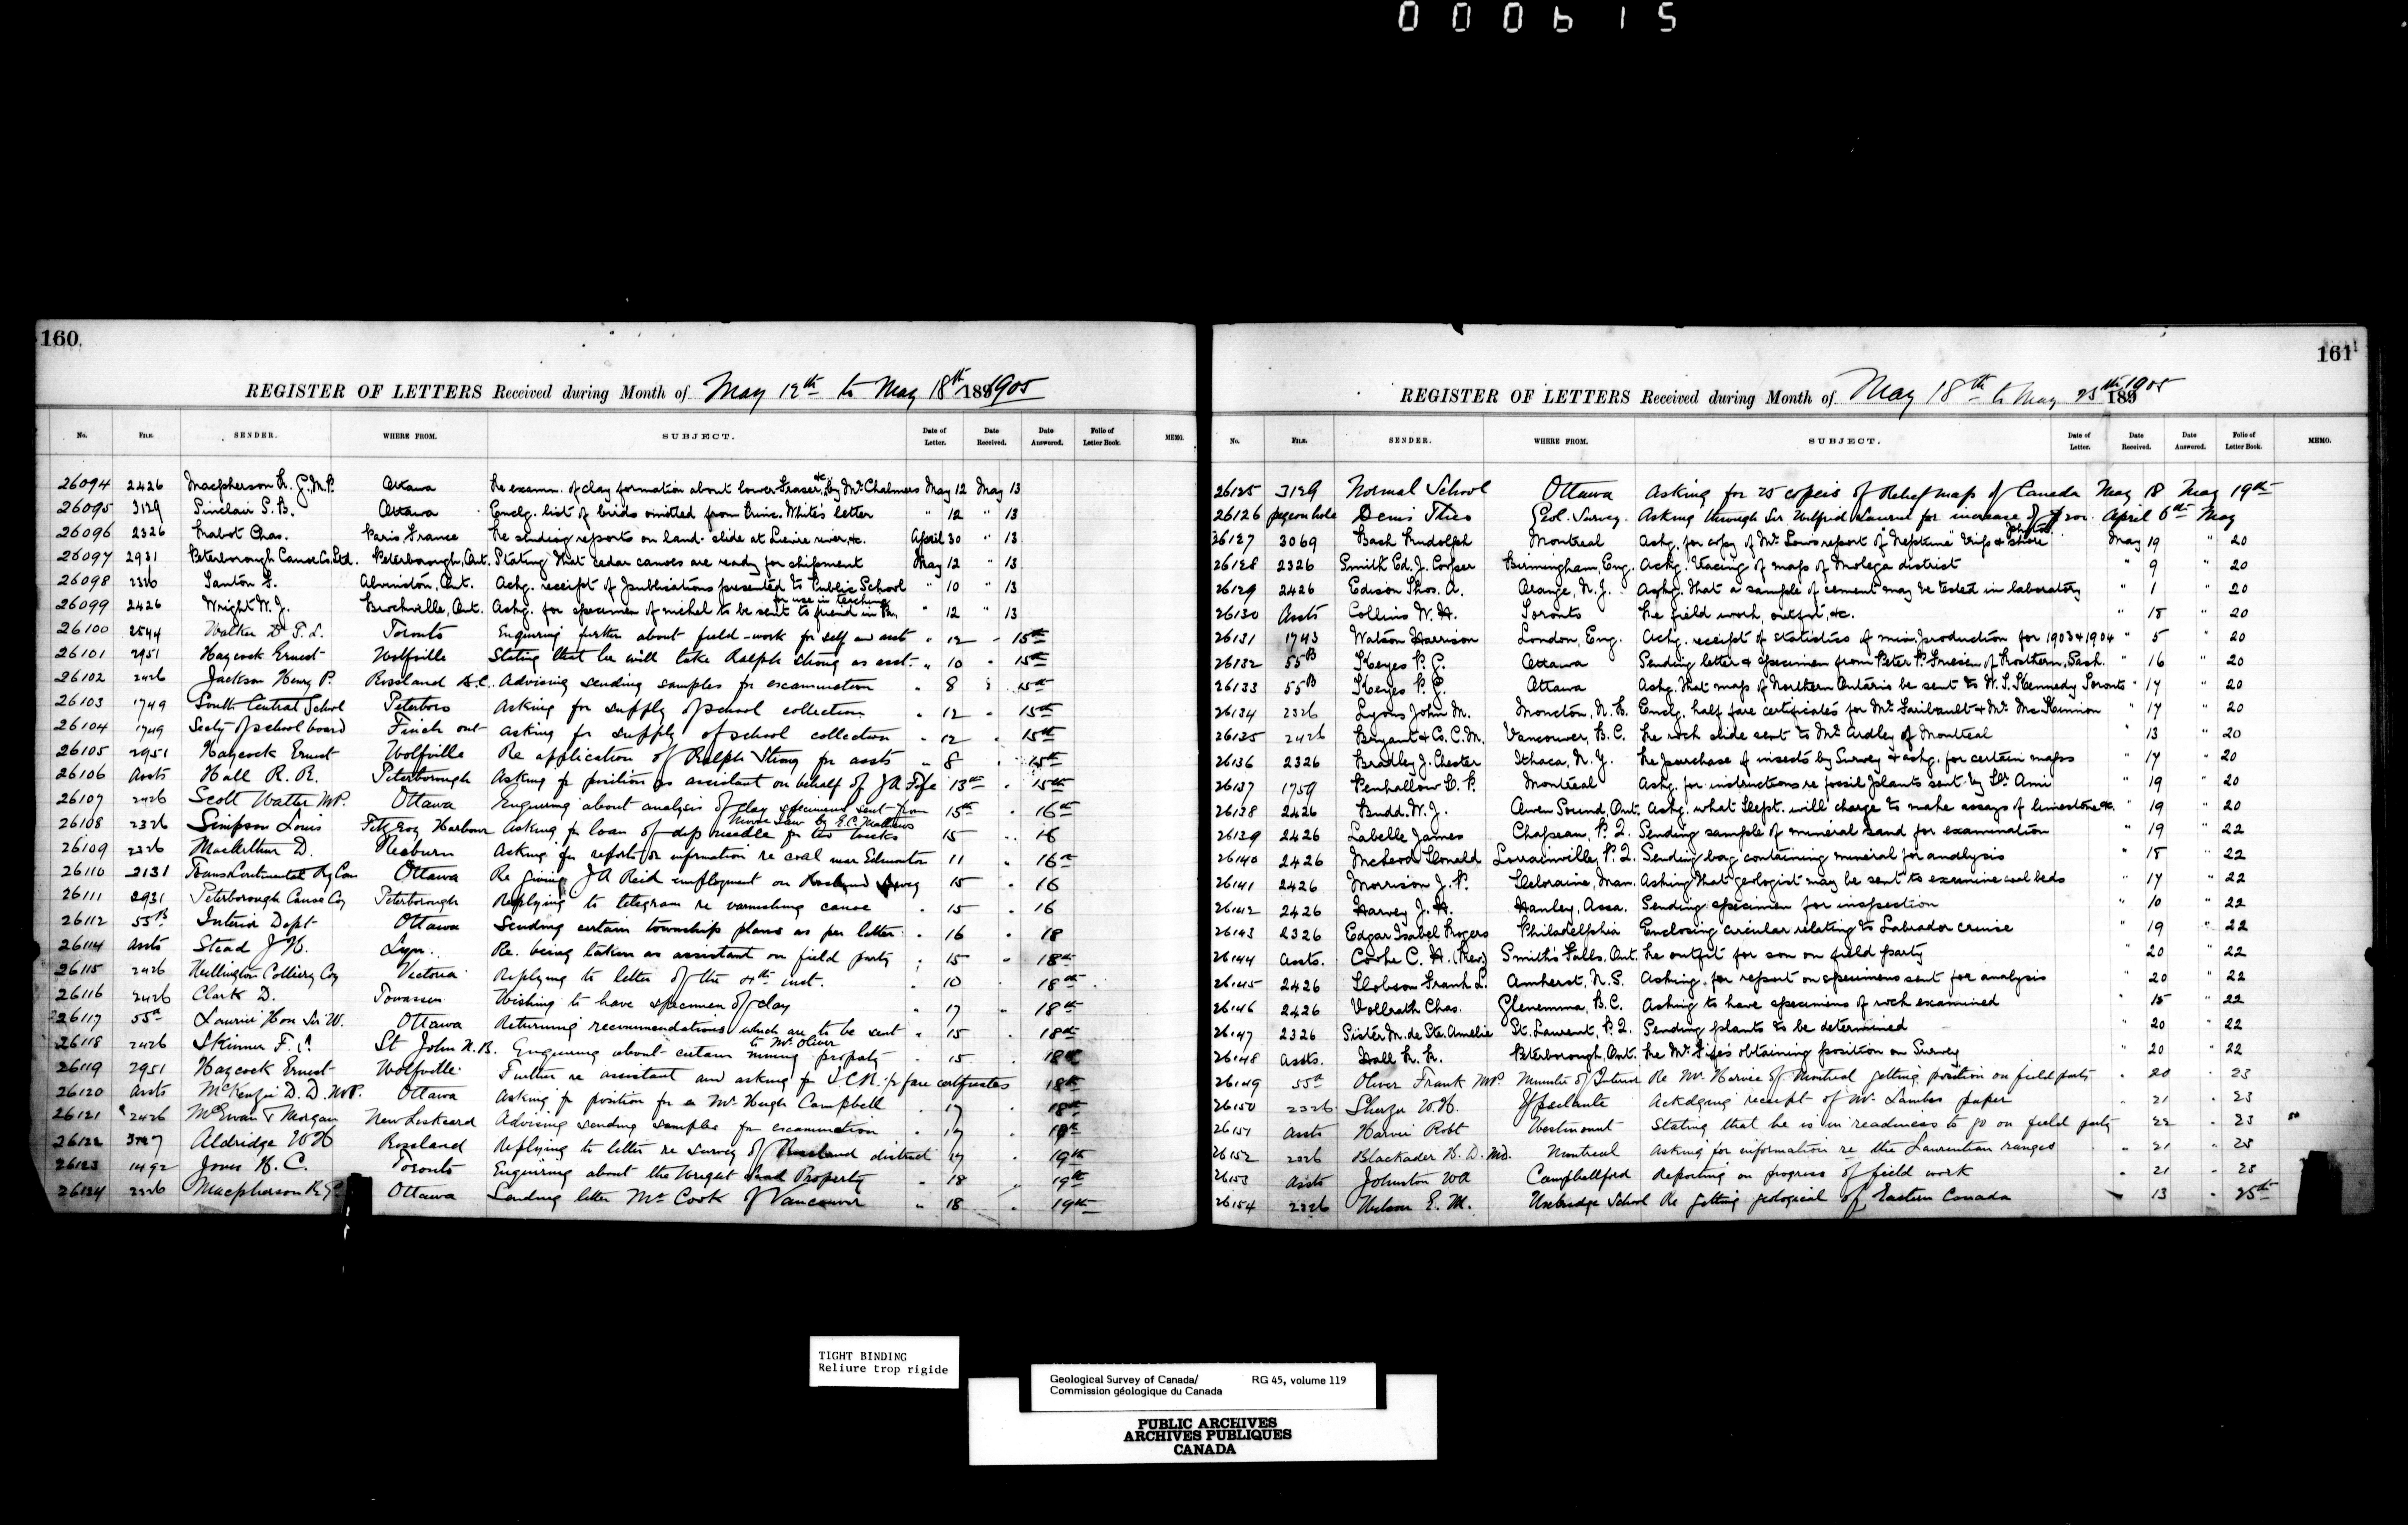 000615
160
REGISTER OF LETTERS Received during Month of May 12th to May 18th 1891905
No. FILE. SENDER. WHERE FROM. SUBJECT. Date of Letter. Date Received. Date Answered. Folio of Letter Book. MEMO.
26094 2426 Macpherson R. G. M.P. Ottawa Re examn. of clay formation about lower Fraser, &c, by Mr. Chalmers May 12 May 13
26095 3129 Sinclair S. B. Ottawa Enclg. list of birds omitted from Princ. White's letter " 12 " 13
26096 2326 Rabot Chas. Paris, France Re sending reports on land-slide at Lievre river, &c. April 30 " 13
26097 2931 Peterborough Canoe Co. Ltd. Peterborough, Ont. Stating that cedar canoes are ready for shipment May 12 " 13
26098 2326 Santon F. Alvinston, Ont. Ackg. receipt of publications presented to Public School " 10 " 13
26099 2426 Wright W. J. Brockville, Ont. Askg. for specimen of nickel to be sent to friend in Pa. for use in teaching " 12 " 13
26100 2544 Walker Dr T. L. Toronto Enquiring further about field-work for self and asst " 12 " 15th
26101 2951 Haycock Ernest Wolfville Stating that he will take Ralph Strong as asst- " 10 " 15th
26102 2426 Jackson Henry P. Rossland B.C. Advising sending samples for examination " 8 " 15th
26103 1749 South Central School Peterboro Asking for supply of school collection " 12 " 15th
26104 1749 Secty of school board Finch ont asking for supply of school collection " 12 " 15th
26105 2951 Haycock Ernest Wolfville Re application of Ralph Strong for assts " 8 " 15th
26106 Assts Hall R. R. Peterborough Asking for position as assistant on behalf of J A Fife 13th " 15th
26107 2426 Scott Walter M.P. Ottawa Enquiring about analysis of clay specimens sent from Moose Jaw by E.C. Mathews 15th " 16th
26108 2326 Simpson Louis Fitzroy Harbour Asking for loan of dip needle for two weeks 15 " 16
26109 2326 MacArthur D. Asking for reports or information re coal near Edmonton 11 " 16th
26110 2131 Trans Continental Ry Com Ottawa Re giving J A Reid employment on 15 " 16
26111 2931 Peterborough Canoe Coy Peterborough Replying to telegram re varnishing canoe " 15 " 16
26112 55B Interior Dept Ottawa Sending certain township plans as per letter " 16 " 18
26114 Assts Stead J H. Lyn. Re. being taken as assistant on field party " 15 " 18th
26115 2426 Wellington Colliery Coy Victoria Replying to letter of the 4th inst. " 10 " 18th
26116 2426 Clark D. Wishing to have specimen of clay " 17 " 18th
26117 55a Laurier Hon Sir W. Ottawa Returning recommendations which are to be sent to Mr. Oliver " 15 " 18th
26118 2426 Skinner F. St John N.B. Enquiring about certain mining property " 15 " 18th
26119 2951 Haycock Ernest Wolfville Further re assistant and asking for I.C.R. fare certificates 18th
26120 Assts McKenzie D. D. M.P. Ottawa Asking for position for a Mr Hugh Campbell " 17 " 18th
26121 2426 McEwan & Morgan New Liskeard Advising sending samples for examination " 17 " 18th
26122 Aldridge W H Rossland Replying to letter re survey of Rossland district 17 " 19th
26123 1492 Jones H. C. Toronto Enquiring about the Wright Lead Property " 18 " 19th
26124 2326 Macpherson R. G. Ottawa Sending letter Mr Cook of Vancouver " 18 " 19th
161
REGISTER OF LETTERS Received during Month of May 18th to May 25th 1891905
No. FILE. SENDER. WHERE FROM. SUBJECT. Date of Letter. Date Received. Date Answered. Folio of Letter Book. MEMO.
26125 3129 Normal School Ottawa Asking for 25 copies of Relief map of Canada May 18 May 19th
26126 pigeon hole Denis Theo Geol. Survey. Asking through Sir Wilfrid Laurier for increase of April 6th May
26127 3069 Bach Rudolph Montreal Askg. for copy of Mr. Low's report of "Neptune" trip & photos May 19 " 20
26128 2326 Smith Ed. J. Cooper Birmingham, Eng. Ackg. tracing of map of Molega district " 9 " 20
26129 2426 Edison Thos. A. Orange, N. J. Askg. that a sample of cement may be tested in laboratory " 1 " 20
26130 Assts Collins W. H. Toronto Re field work, outfit, &c. " 18 " 20
26131 1743 Watson Harrison London, Eng. Ackg. receipt of statistics of min. production for 1903 & 1904 " 5 " 20
26132 55B Keyes P. G. Ottawa Sending letter & specimen from Peter P. Friesen of Rosthern, Sask. " 16 " 20
26133 55B Keyes P. G. Ottawa Askg. that map of Northern Ontario be sent to W. S. Kennedy Toronto " 17 " 20
26134 2326 Lyons John M. Moncton, N. B. Enclg. half fare certificates for Mr. Faribault & Mr. McKinnon " 17 " 20
26135 2426 Bryant & Co. C. M. Vancouver, B. C. Re rock slide sent to Mr. Ardley of Montreal " 13 " 20
26136 2326 Bradley J. Chester Ithaca, N. Y. Re purchase of insects by Survey & askg. for certain maps " 17 " 20
26137 1759 Penhallow D. P. Montreal Askg. for instructions re fossil plants sent by Dr. Ami " 19 " 20
26138 2426 Budd. W. J. Owen Sound, Ont. Askg. what Dept. will charge to make assays of limestone &c. " 19 " 20
26139 2426 Labelle James Chapeau, P. Q. Sending sample of mineral sand for examination " 19 " 22
26140 2426 McLeod Donald Lorrainville, P. Q. Sending bag containing mineral for analysis " 18 " 22
26141 2426 Morrison J. P. Deloraine, Man. Asking that geologist may be sent to examine coal beds " 17 " 22
26142 2426 Harvey J. H. Hanley, Assa. Sending specimen for inspection " 10 " 22
26143 2326 Edgar Isabel Rogers Philadelphia Enclosing circular relating to Labrador cruise " 19 " 22
26144 Assts. Cooke C. H. (Rev.) Smith's Falls, Ont. Re outfit for son on field party " 20 " 22
26145 2426 Dobson Frank L. Amherst, N. S. Asking for report on specimens sent for analysis " 20 " 22
26146 2426 Vollrath Chas. Glenemma, B. C. Asking to have specimens of rock examined " 15 " 22
26147 2326 Sister M. de Ste. Amelie St. Laurent, P. Q. Sending plants to be determined " 20 " 22
26148 Assts. Hall R. R. Peterborough, Ont. Re Mr. Fife's obtaining position on Survey " 20 " 22
26149 55a Oliver Frank M.P. Minister of Interior Re Mr. Harvie of Montreal getting position on field party " 20 " 23
26150 2326 Sherzer W. H. Ypsilante Ackdging receipt of Mr. Lambes paper " 21 " 23
26151 Assts Harvie Robt Westmount Stating that he is in readiness to go on field party 22 " 23
26152 2326 Blackader H. D. MD. Montreal Asking for information re the Laurentian ranges " 21 " 25
26153 Assts Johnston WA Campbellford Reporting on progress of field work " 21 " 25
26154 2326 Wilson E. M. Uxbridge School Re getting geological of Eastern Canada " 13 " 25th
TIGHT BINDING
Reliure trop rigide
Geological Survey of Canada/ RG 45, volume 119
Commission géologique du Canada
PUBLIC ARCHIVES
ARCHIVES PUBLIQUES
CANADA